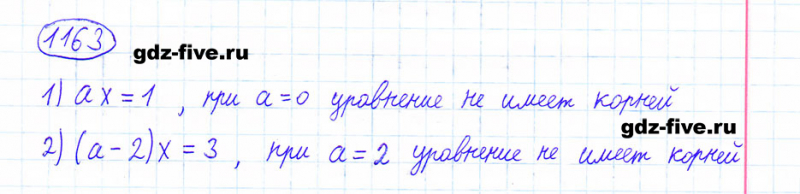 1163
gdz-five.ru
1) ax = 1 , при a = 0 уравнение не имеет корней
gdz-five.ru
2) (a - 2)x = 3 , при a = 2 уравнение не имеет корней